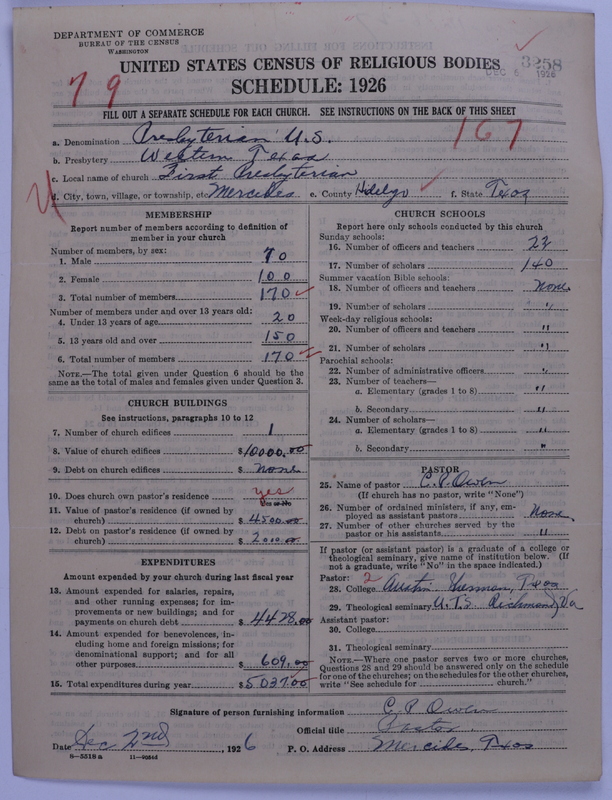 DEPARTMENT OF COMMERCE
BUREAU OF THE CENSUS
WASHINGTON
3258
DEC 6 1926
UNITED STATES CENSUS OF RELIGIOUS BODIES
SCHEDULE: 1926
79
FILL OUT A SEPARATE SCHEDULE FOR EACH CHURCH. SEE INSTRUCTIONS ON THE BACK OF THIS SHEET
167
a. Denomination Presbyterian U.S.
b. Presbytery Western Texas
c. Local name of church First Presbyterian
d. City, town, village, or township, etc. Mercedes e. County Hidelgo f. State Texas
MEMBERSHIP
Report number of members according to definition of
member in your church
Number of members, by sex:
1. Male 70
2. Female 100
3. Total number of members 170
Number of members under and over 13 years old:
4. Under 13 years of age 20
5. 13 years old and over 150
6. Total number of members 170
NOTE.—The total given under Question 6 should be the
same as the total of males and females given under Question 3.
CHURCH BUILDINGS
See instructions, paragraphs 10 to 12
7. Number of church edifices 1
8. Value of church edifices $10000.00
9. Debt on church edifices $ none
10. Does church own pastor's residence yes
Yes or No
11. Value of pastor's residence (if owned by
church) $ 4500.00
12. Debt on pastor's residence (if owned by
church) $ 2000.00
EXPENDITURES
Amount expended by your church during last fiscal year
13. Amount expended for salaries, repairs,
and other running expenses; for im-
provements or new buildings; and for
payments on church debt $ 4428.00
14. Amount expended for benevolences, in-
cluding home and foreign missions; for
denominational support; and for all
other purposes $ 609.00
15. Total expenditures during year $5037.00
CHURCH SCHOOLS
Report here only schools conducted by this church
Sunday schools:
16. Number of officers and teachers 22
17. Number of scholars 140
Summer vacation Bible schools:
18. Number of officers and teachers None
19. Number of scholars "
Week-day religious schools:
20. Number of officers and teachers "
21. Number of scholars "
Parochial schools:
22. Number of administrative officers "
23. Number of teachers—
a. Elementary (grades 1 to 8) "
b. Secondary "
24. Number of scholars—
a. Elementary (grades 1 to 8) "
b. Secondary "
PASTOR
25. Name of pastor C. P. Owen
(If church has no pastor, write "None")
26. Number of ordained ministers, if any, em-
ployed as assistant pastors None
27. Number of other churches served by the
pastor or his assistants "
If pastor (or assistant pastor) is a graduate of a college or
theological seminary, give name of institution below. (If
not a graduate, write "No" in the space indicated.)
Pastor:
28. College 2 Austin Sherman, Texas
29. Theological seminary U.T.S. Richmond, Va
Assistant pastor:
30. College
31. Theological seminary
NOTE.—Where one pastor serves two or more churches,
Questions 28 and 29 should be answered only on the schedule
for one of the churches; on the schedules for the other churches,
write "See schedule for church."
Signature of person furnishing information C. P. Owen
Official title Pastor
Date Dec 2nd, 1926 P. O. Address Mercedes, Texas
8—5518 a